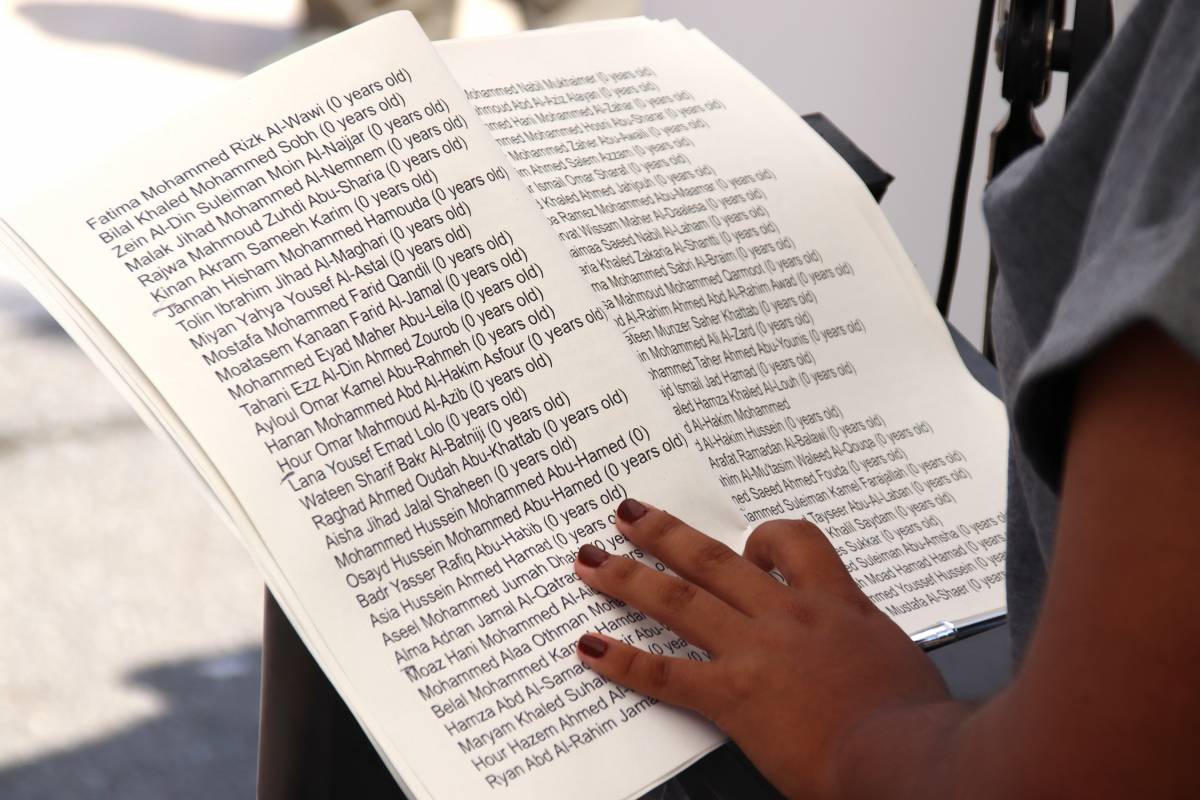 Fatima Mohammed Rizk Al-Wawi (0 years old)
Bilal Khaled Mohammed Sobh (0 years old)
Zein Al-Din Suleiman Moin Al-Najjar (0 years old)
Malak Jihad Mohammed Al-Nemnem (0 years old)
Rajwa Mahmoud Zuhdi Abu-Sharia (0 years old)
Kinan Akram Sameeh Karim (0 years old)
Jannah Hisham Mohammed Hamouda (0 years old)
Tolin Ibrahim Jihad Al-Maghari (0 years old)
Miyan Yahya Yousef Al-Astal (0 years old)
Mostafa Mohammed Farid Qandil (0 years old)
Moatasem Kanaan Farid Al-Jamal (0 years old)
Mohammed Eyad Maher Abu-Leila (0 years old)
Tahani Ezz Al-Din Ahmed Zourob (0 years old)
Ayloul Omar Kamel Abu-Rahmeh (0 years old)
Hanan Mohammed Abd Al-Hakim Asfour (0 years old)
Hour Omar Mahmoud Al-Azib (0 years old)
Lana Yousef Emad Lolo (0 years old)
Wateen Sharif Bakr Al-Batniji (0 years old)
Raghad Ahmed Oudah Abu-Khattab (0 years old)
Aisha Jihad Jalal Shaheen (0 years old)
Mohammed Hussein Mohammed Abu-Hamed (0)
Osayd Hussein Mohammed Abu-Hamed (0 years old)
Badr Yasser Rafiq Abu-Habib (0 years old)
Asia Hussein Ahmed Hamad (0 years old)
Aseel Mohammed Jumah
Alma Adnan Jamal
Moaz Hani Mohammed
Mohammed Alaa Othman
Belal Mohammed
Hamza Abd
Maryam Khaled
Hour Hazem Ahmed
Ryan Abd Al-Rahim
Mohammed Nabil Mukhaimer (0 years old)
Abd Al-Aziz Alayan (0 years old)
Hani Mohammed Al-Zahar (0 years old)
Mohammed Hosni Abu-Sharar (0 years old)
Mohammed Zaher Abu-Awali (0 years old)
Ahmed Salem Azzam (0 years old)
Ismail Omar Sharaf (0 years old)
Khaled Ahmed Jahjouh (0 years old)
Ramez Mohammed Abu-Maamar (0 years old)
Wissam Maher Al-Daalesa (0 years old)
Saeed Nabil Al-Laham (0 years old)
Khaled Zakaria Al-Shantti (0 years old)
Mohammed Sabri Al-Breim (0 years old)
Mahmoud Mohammed Qarmoot (0 years old)
Al-Rahim Ahmed Abd Al-Rahim Awad (0 years old)
Munzer Saher Khattab (0 years old)
Mohammed Ali Al-Zard (0 years old)
Taher Ahmed Abu-Younis (0 years old)
Ismail Jad Hamad (0 years old)
Hamza Khaled Al-Louh (0 years old)
Al-Hakim Mohammed
Al-Hakim Hussein (0 years old)
Arafat Ramadan Al-Balawi (0 years old)
Al-Mu'tasim Waleed Al-Qouqa (0 years old)
Saeed Ahmed Fouda (0 years old)
Suleiman Kamel Farajallah (0 years old)
Tayseer Abu-Al-Laban (0 years old)
Khalil Saydam (0 years old)
Sukkar (0 years old)
Suleiman Abu-Amsha (0 years
Moad Hamad Hamad (0 years old)
Youssef Hussein (0 years old)
Mustafa Al-Shaer (0 years